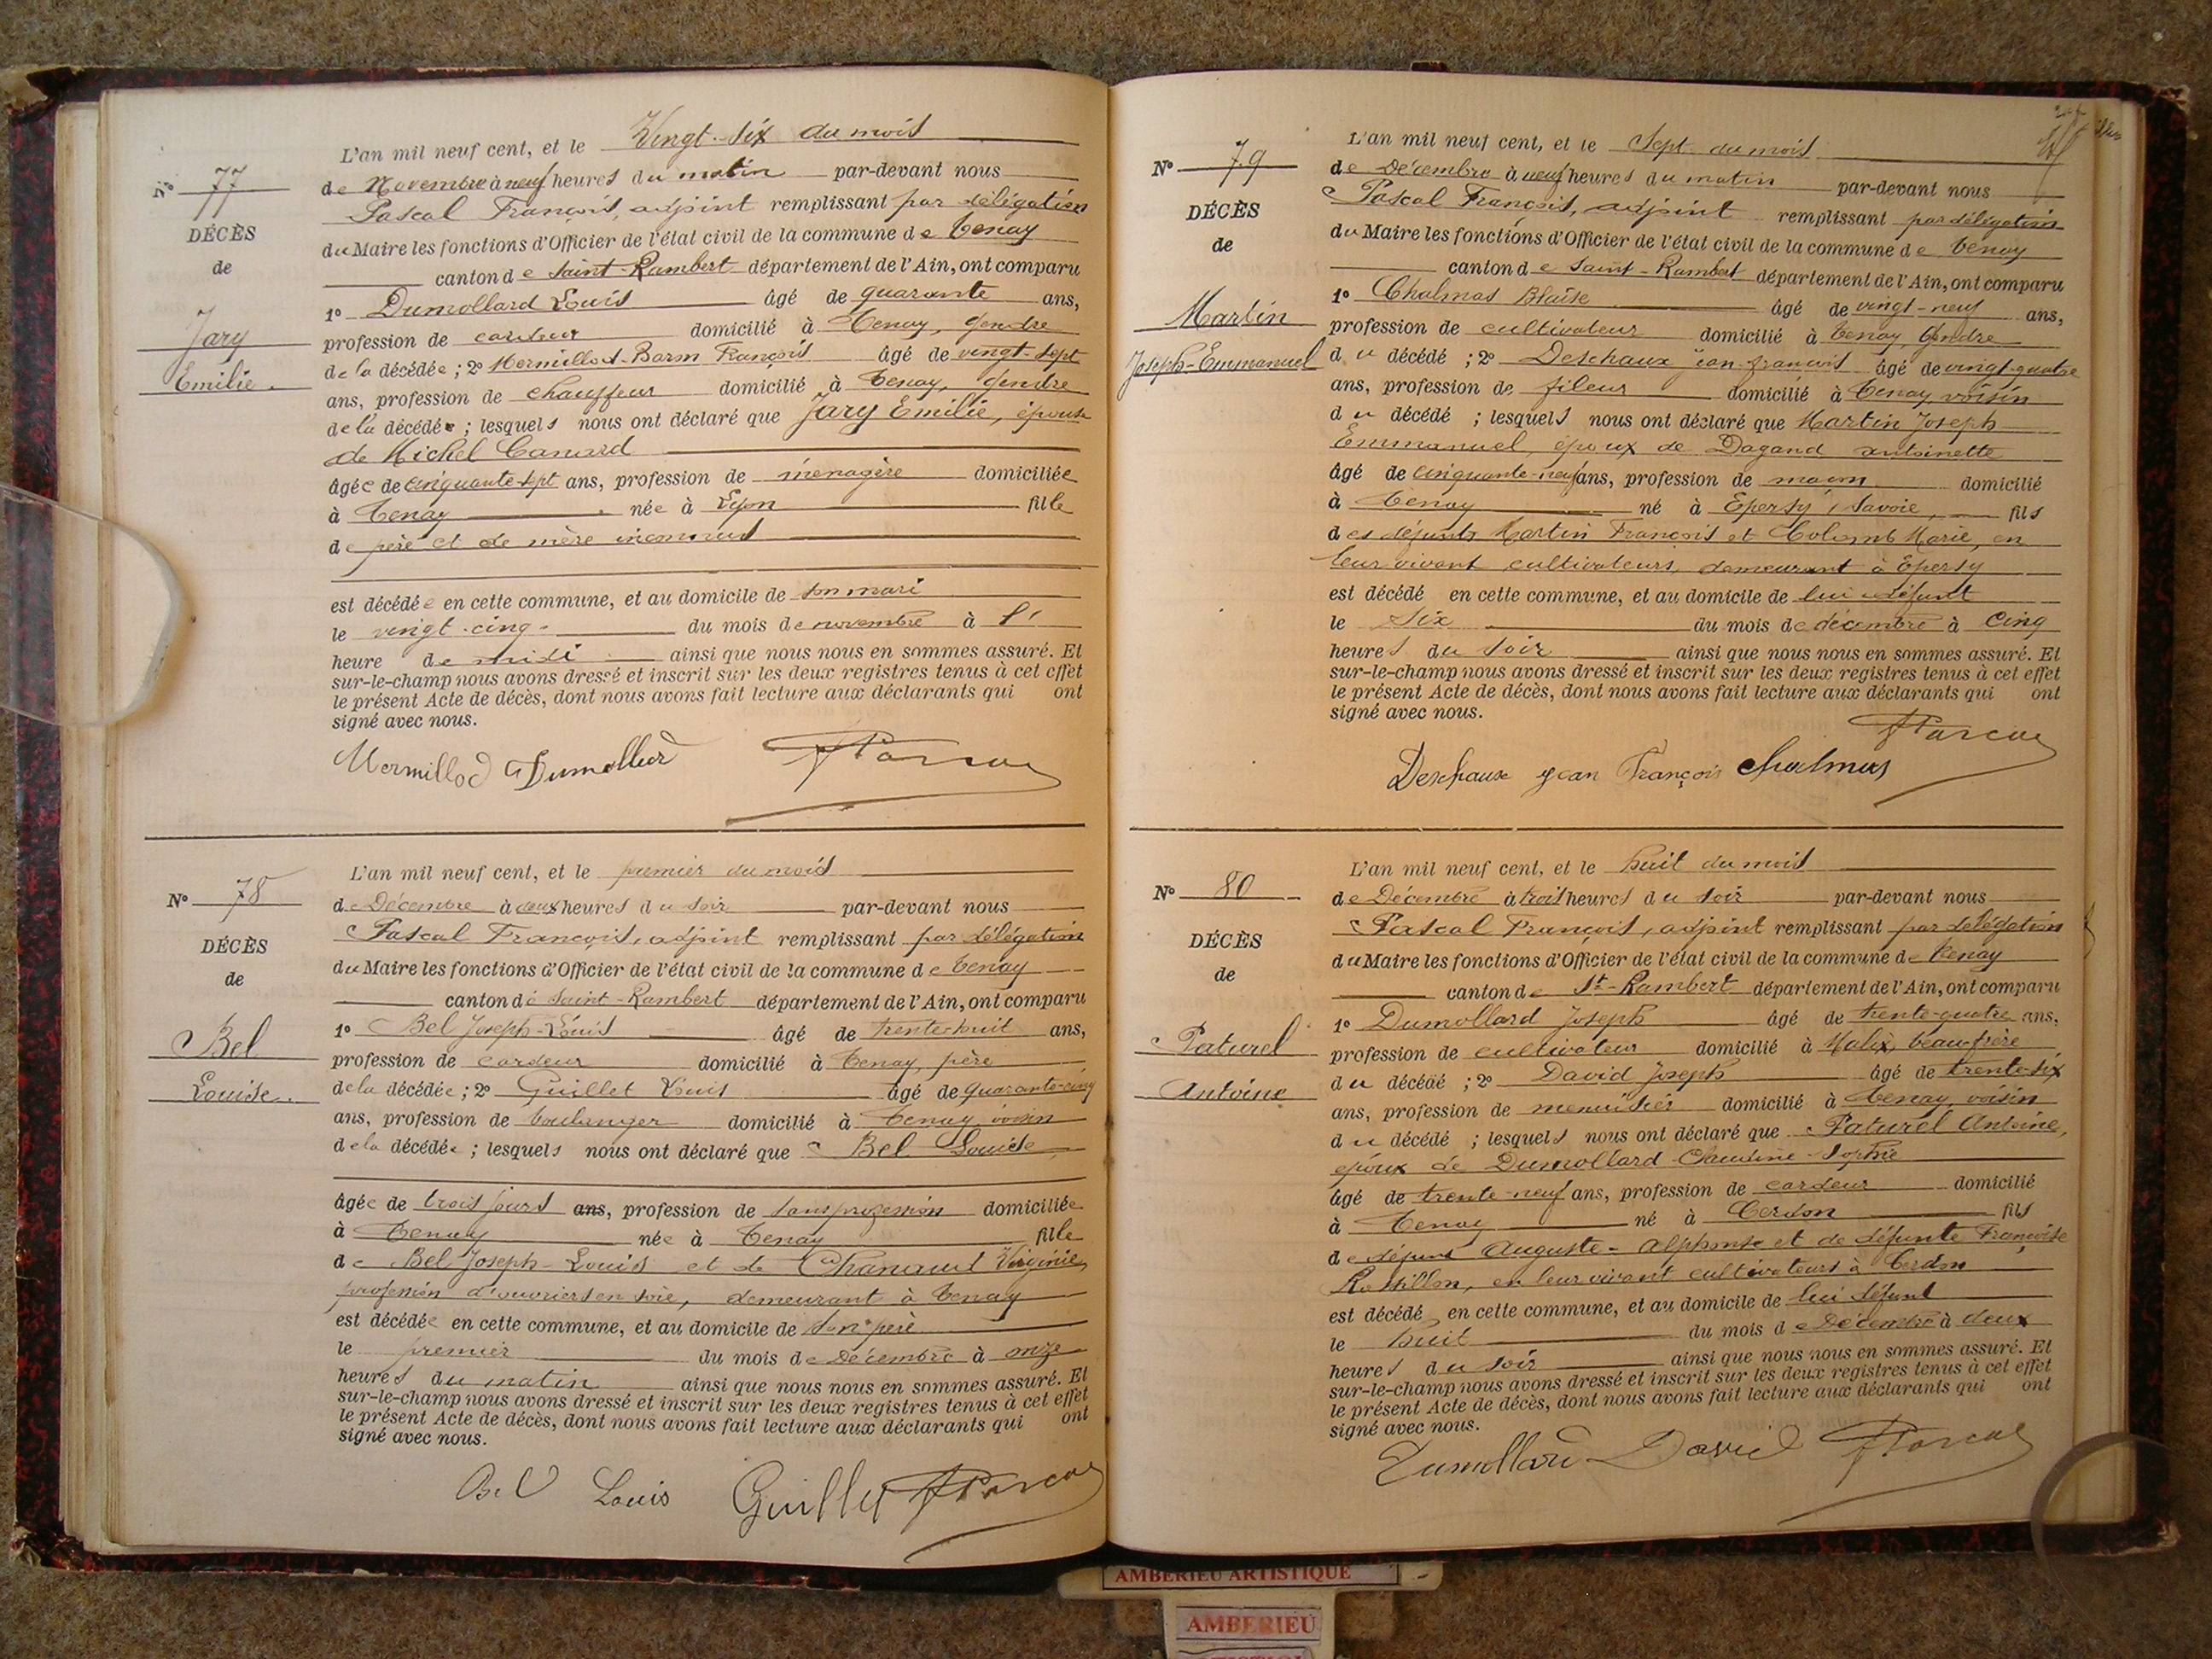 L'an mil neuf cent, et le Vingt-six du mois
N° 77
de Novembre à neuf heures du matin par-devant nous
Pascal François, adjoint remplissant par délégation
DÉCÈS
du Maire les fonctions d'Officier de l'état civil de la commune de Tenay
de
canton de Saint-Rambert département de l'Ain, ont comparu
1° Dumollard Louis âgé de quarante ans,
Jary
profession de cardeur domicilié à Tenay, gendre
Emilie.
de la décédée ; 2° Mermillod-Baron François âgé de vingt-sept
ans, profession de chauffeur domicilié à Tenay, gendre
de la décédée ; lesquels nous ont déclaré que Jary Emilie, épouse
de Michel Canard
âgée de cinquante-sept ans, profession de ménagère domiciliée
à Tenay née à Lyon fille
de père et de mère inconnus
est décédée en cette commune, et au domicile de son mari
le vingt-cinq du mois de novembre à l'
heure de midi ainsi que nous nous en sommes assuré. Et
sur-le-champ nous avons dressé et inscrit sur les deux registres tenus à cet effet
le présent Acte de décès, dont nous avons fait lecture aux déclarants qui ont
signé avec nous.
Mermillod Dumollard FPascal
L'an mil neuf cent, et le premier du mois
N° 78
de Décembre à deux heures du soir par-devant nous
Pascal François, adjoint remplissant par délégation
DÉCÈS
du Maire les fonctions d'Officier de l'état civil de la commune de Tenay
de
canton de Saint-Rambert département de l'Ain, ont comparu
1° Bel Joseph-Louis âgé de trente-huit ans,
Bel
profession de cardeur domicilié à Tenay, père
Louise.
de la décédée ; 2° Guillet Louis âgé de quarante-cinq
ans, profession de boulanger domicilié à Tenay, voisin
de la décédée ; lesquels nous ont déclaré que Bel Louise
âgée de trois jours ans, profession de sans profession domiciliée
à Tenay née à Tenay fille
de Bel Joseph-Louis et de Virginie,
profession d'ouvriers en soie, demeurant à Tenay
est décédée en cette commune, et au domicile de son père
le premier du mois de Décembre à onze
heures du matin ainsi que nous nous en sommes assuré. Et
sur-le-champ nous avons dressé et inscrit sur les deux registres tenus à cet effet
le présent Acte de décès, dont nous avons fait lecture aux déclarants qui ont
signé avec nous.
Bel Louis Guillet FPascal
L'an mil neuf cent, et le Sept du mois
N° 79
de Décembre à neuf heures du matin par-devant nous
Pascal François, adjoint remplissant par délégation
DÉCÈS
du Maire les fonctions d'Officier de l'état civil de la commune de Tenay
de
canton de Saint-Rambert département de l'Ain, ont comparu
1° Chalmas Blaise âgé de vingt-neuf ans,
Martin
profession de cultivateur domicilié à Tenay, Gendre
Joseph-Emmanuel
du décédé ; 2° Deschaux jean-françois âgé de vingt-quatre
ans, profession de fileur domicilié à Tenay, voisin
du décédé ; lesquels nous ont déclaré que Martin Joseph
Emmanuel, époux de Dagand antoinette
âgé de cinquante-neuf ans, profession de maçon domicilié
à Tenay né à Epersy, Savoie, fils
des défunts Martin François et Colomb Marie, en
leur vivant cultivateurs, demeurant à Epersy
est décédé en cette commune, et au domicile de lui défunt
le Six du mois de décembre à cinq
heures du soir ainsi que nous nous en sommes assuré. Et
sur-le-champ nous avons dressé et inscrit sur les deux registres tenus à cet effet
le présent Acte de décès, dont nous avons fait lecture aux déclarants qui ont
signé avec nous.
FPascal
Deschaux jean François chalmas
L'an mil neuf cent, et le huit du mois
N° 80
de Décembre à trois heures du soir par-devant nous
Pascal François, adjoint remplissant par délégation
DÉCÈS
du Maire les fonctions d'Officier de l'état civil de la commune de Tenay
de
canton de St-Rambert département de l'Ain, ont comparu
1° Dumollard Joseph âgé de trente-quatre ans,
Paturel
profession de cultivateur domicilié à Malix, beau-frère
Antoine
du décédé ; 2° David Joseph âgé de trente-six
ans, profession de menuisier domicilié à Tenay, voisin
du décédé ; lesquels nous ont déclaré que Paturel Antoine,
époux de Dumollard Claudine-Sophie
âgé de trente-neuf ans, profession de cardeur domicilié
à Tenay né à Cerdon fils
de défunt Auguste-alphonse et de défunte Françoise
Rossillon, en leur vivant cultivateurs à Cerdon
est décédé en cette commune, et au domicile de lui défunt
le huit du mois de Décembre à deux
heures du soir ainsi que nous nous en sommes assuré. Et
sur-le-champ nous avons dressé et inscrit sur les deux registres tenus à cet effet
le présent Acte de décès, dont nous avons fait lecture aux déclarants qui ont
signé avec nous.
Dumollard David FPascal
AMBERIEU ARTISTIQUE
AMBERIEU